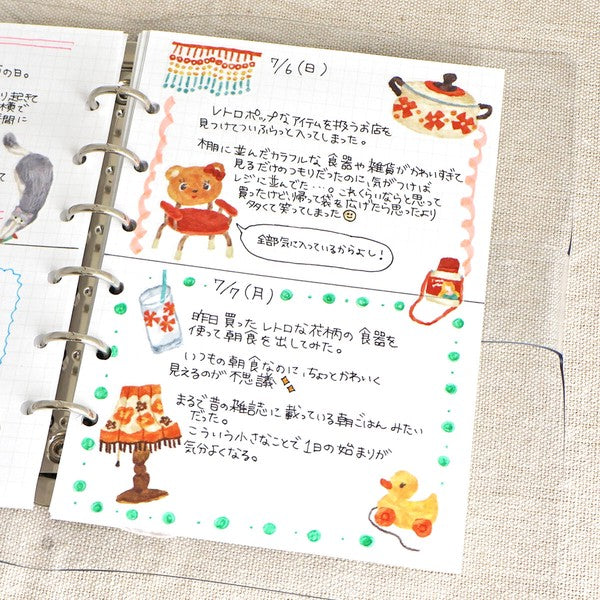 の日。
り起きて
横で
間に
て
7/6(日)
レトロポップなアイテムを扱うお店を
見つけてついふらっと入ってしました。
棚に並んだカラフルな食器や雑貨がかわいすぎて
見るだけのつもりだったのに、気がつけば
レジに並んでた…。これくらいならと思って
買ったけど、帰って袋を広げたら思ったより
多くて笑ってしまった
全部気に入っているからよし!
7/7(月)
昨日買ったレトロな花柄の食器を
使って朝食を出してみた。
いつもの朝食なのに、ちょっとかわいく
見えるのが不思議
まるで昔の雑誌に載っている朝ごはんみたい
だった。
こういう小さなことで1日の始まりが
気分よくなる。